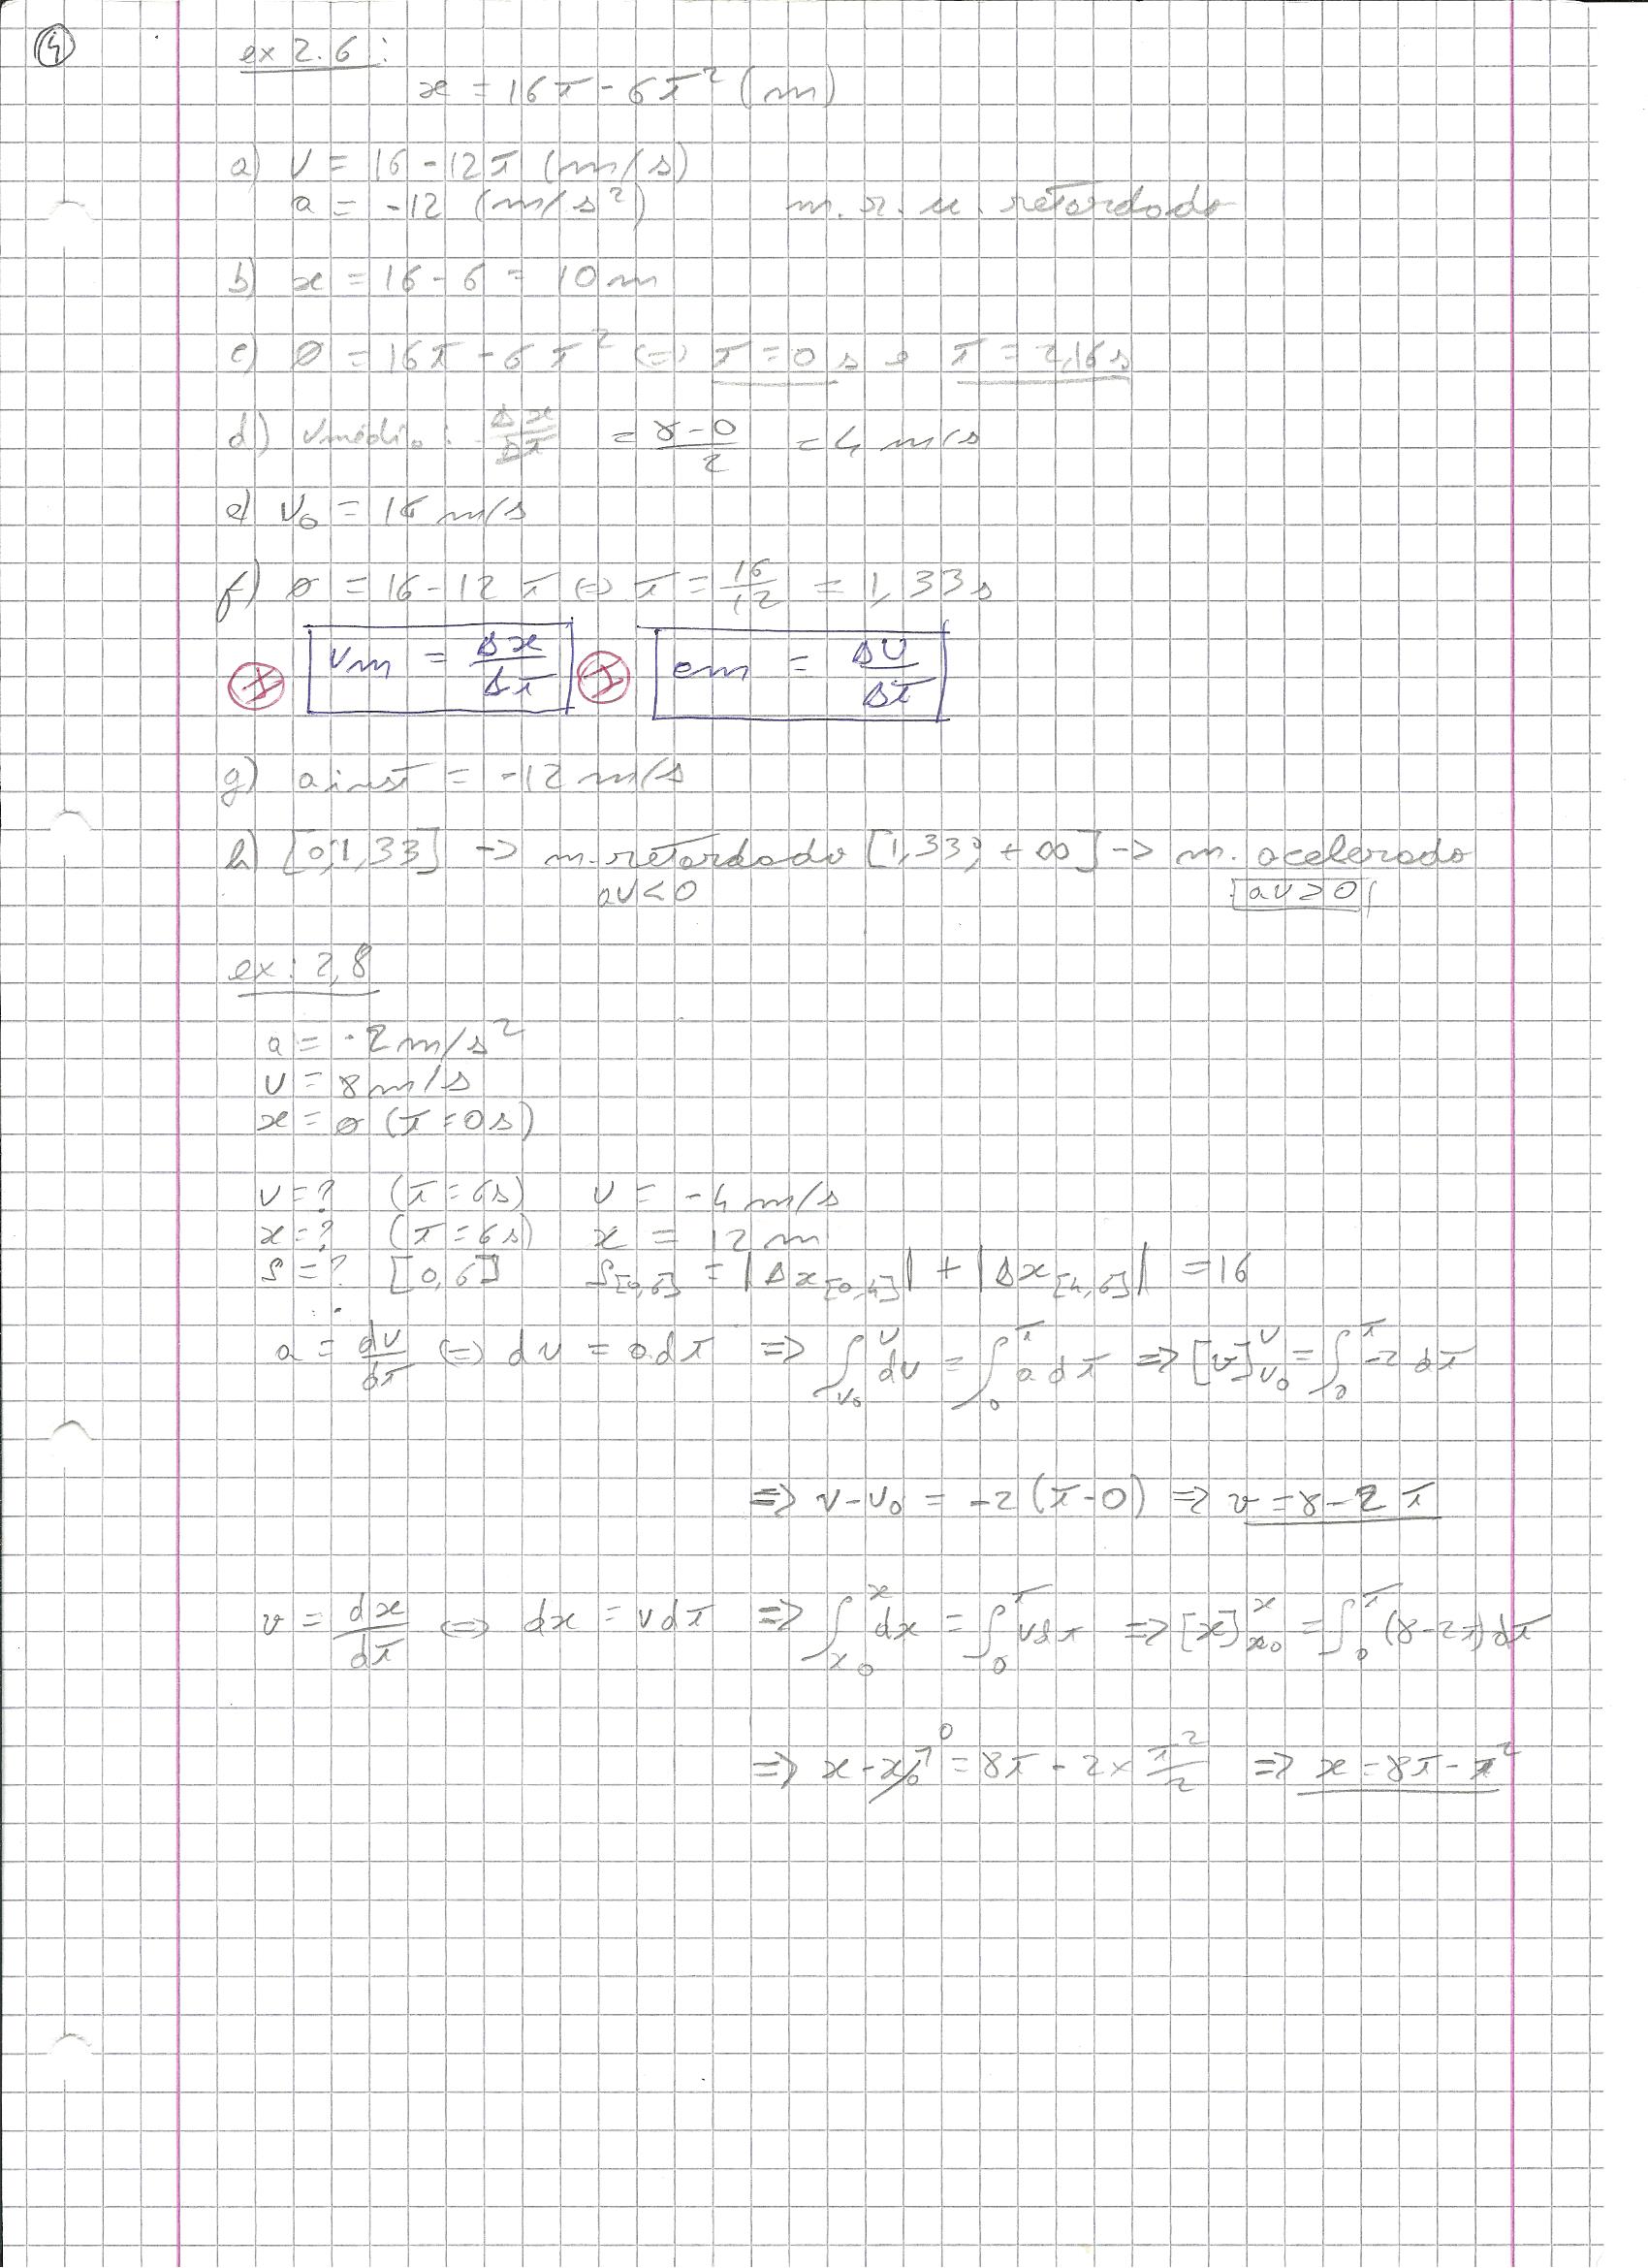 4
ex 2.6:
x = 16t - 6t² (m)
a) v = 16 - 12t (m/s)
a = -12 (m/s²) m.r.u. retardado
b) x = 16 - 6 = 10 m
c) 0 = 16t - 6t² (=) t = 0 s e t = 2,16 s
d) vmédia: Δx/Δt = (8-0)/2 = 4 m/s
e) v₀ = 16 m/s
f) 0 = 16 - 12t (=) t = 16/12 = 1,33 s
vm = Δx/Δt am = ΔV/Δt
g) a inst = -12 m/s
h) [0;1,33] -> m. retardado [1,33; +∞] -> m. acelerado
av < 0 av > 0
ex: 2,8
a = -2 m/s²
v = 8 m/s
x = 0 (t = 0s)
v = ? (t = 6s) v = -4 m/s
x = ? (t = 6s) x = 12 m
S = ? [0,6] S[0,6] = |Δx[0,4]| + |Δx[4,6]| = 16
a = dv/dt (=) dv = a.dt => ∫_{v₀}^{v} dv = ∫_{0}^{t} a dt => [v]_{v₀}^{v} = ∫_{0}^{t} -2 dt
=> v - v₀ = -2(t-0) => v = 8 - 2t
v = dx/dt (=) dx = vdt => ∫_{x₀}^{x} dx = ∫_{0}^{t} vdt => [x]_{x₀}^{x} = ∫_{0}^{t} (8-2t)dt
=> x - x₀↗0 = 8t - 2 × t²/2 => x = 8t - t²